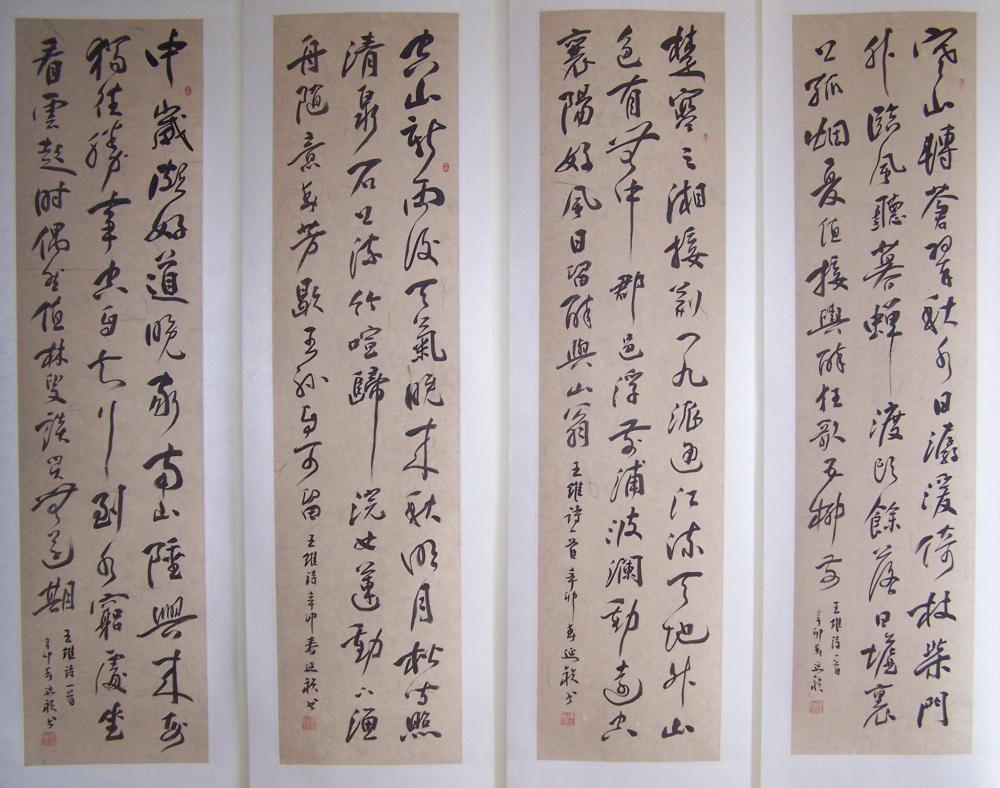 寒山轉蒼翠秋水日潺湲倚杖柴門
外臨風聽暮蟬渡頭餘落日墟裏
上孤烟復值接輿醉狂歌五柳前
王維诗一首
辛卯春
楚塞三湘接荆门九派通江流天地外山
色有無中郡邑浮前浦波瀾動遠空
襄陽好風日留醉與山翁 王維诗一首 辛卯春
空山新雨後天氣晚来秋明月松间照
清泉石上流竹喧歸浣女蓮動下漁
舟随意春芳歇王孙自可留 王維诗 辛卯春
中歲頗好道晚家南山陲興来每
獨往勝事空自知行到水窮處坐
看雲起时偶然值林叟談笑無還期
王維诗一首
辛卯春